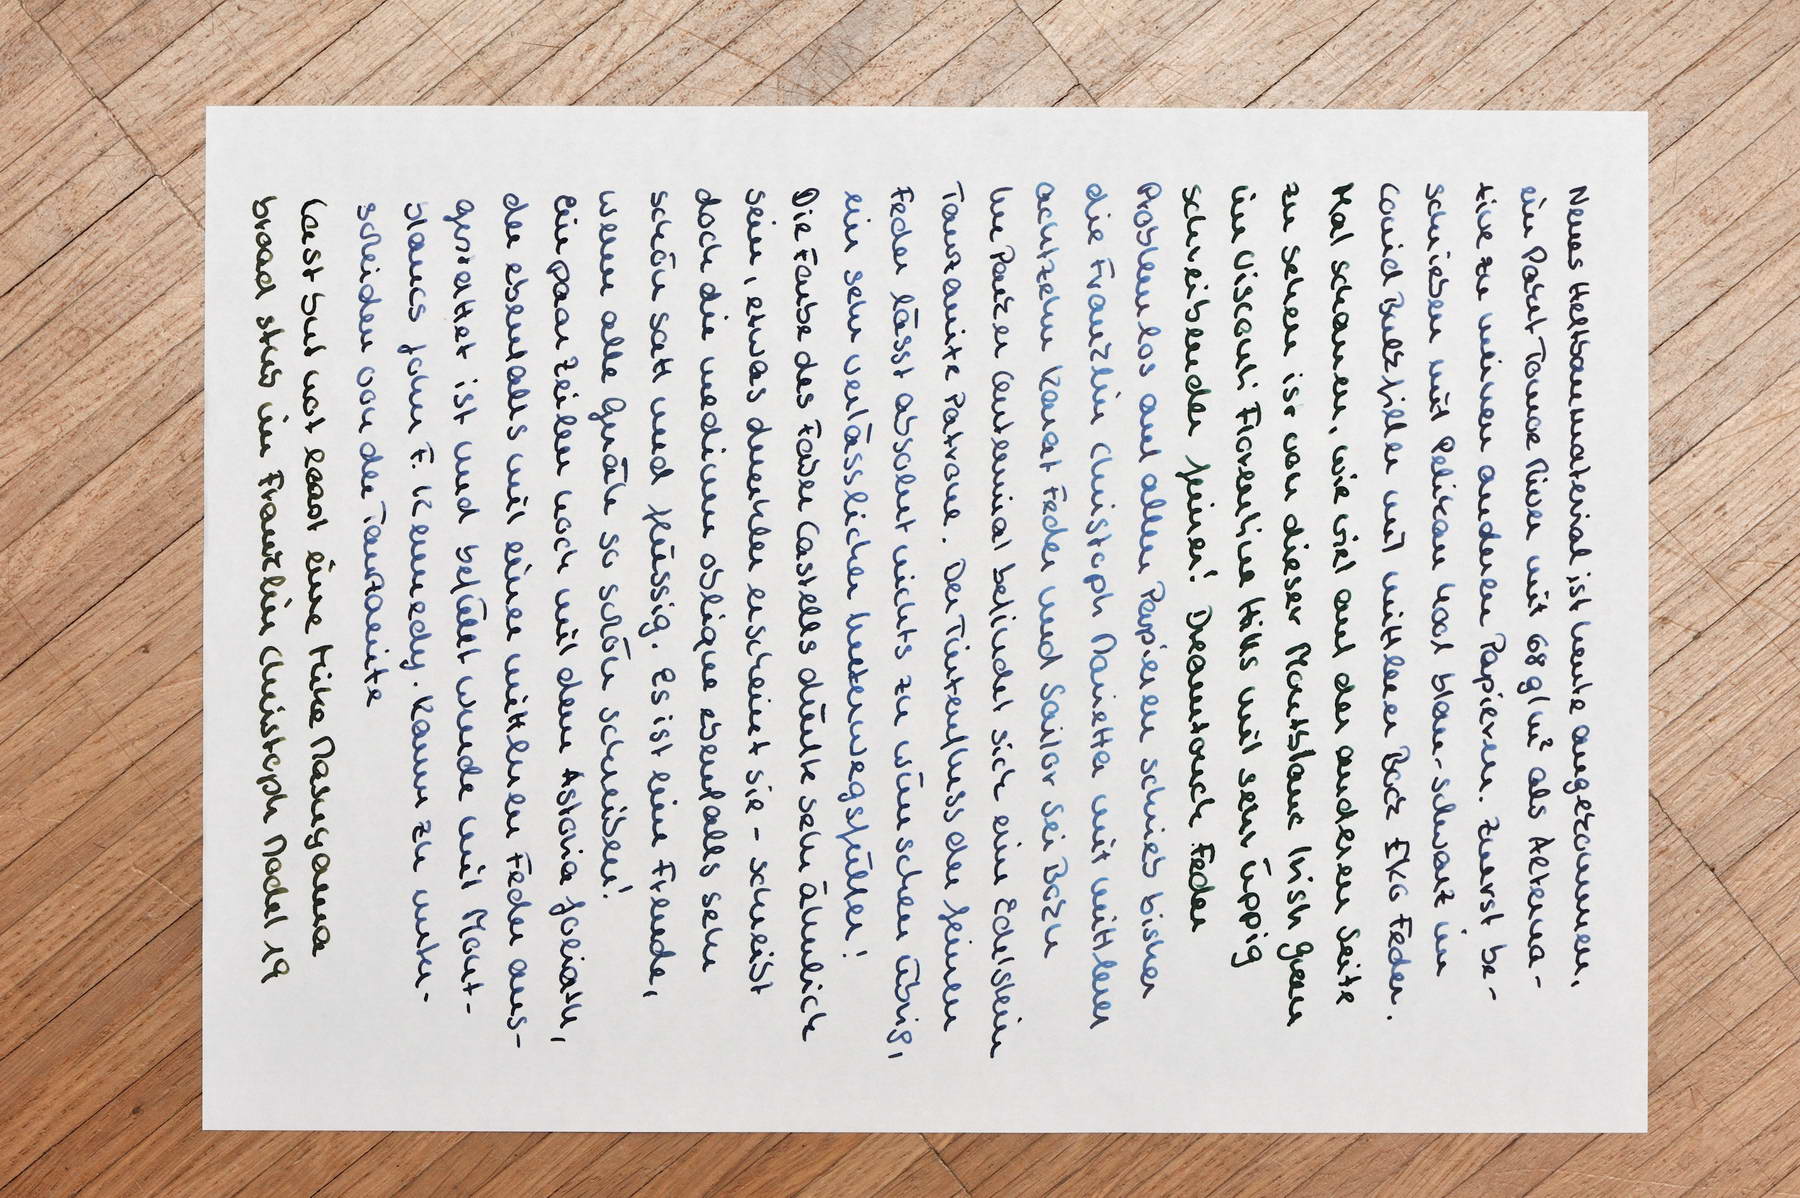 Neues Heftbanmaterial ist heute angekommen,
ein Paket Tomoe River mit 68 g/m² als Alterna-
tive zu meinen anderen Papieren. Zuerst be-
schrieben mit Pelikan 4001 blau-schwarz im
Conid Bulkfiller mit mittlerer Bock Feder.
Mal schauen, wie viel auf der anderen Seite
zu sehen ist von dieser Montblanc Irish Green
im Visconti Florentine Hills mit sehr üppig
schreibender feiner! Dreamtouch Feder
Problemlos auf allen Papieren schrieb bisher
die Franklin Christoph Marietta mit mittlerer
achtzehn Karat Feder und Sailor Sei Boku
Im Parker Centennial befindet sich ein Edelstein
Tanzanite Patrone. Der Tintenfluss der feinen
Feder lässt absolut nichts zu wünschen übrig,
ein sehr verlässlicher Unterwegsfüller!
Die Farbe des Faber Castells dünkt sehr ähnlich
sein, etwas dunkler erscheint sie - schreibt
doch die medium oblique ebenfalls sehr
schön satt und flüssig. Es ist eine Freude,
wenn alle Geräte so schön schreiben!
Ein paar Zeilen noch mit dem Astoria Goliath,
der ebenfalls mit einer mittleren Feder aus-
gestattet ist und befüllt wurde mit Mont-
blancs John F. Kennedy. Kaum zu unter-
scheiden von der Tanzanite
Last but not least eine Hike Naruyama
broad stub im Franklin Christoph Model 19